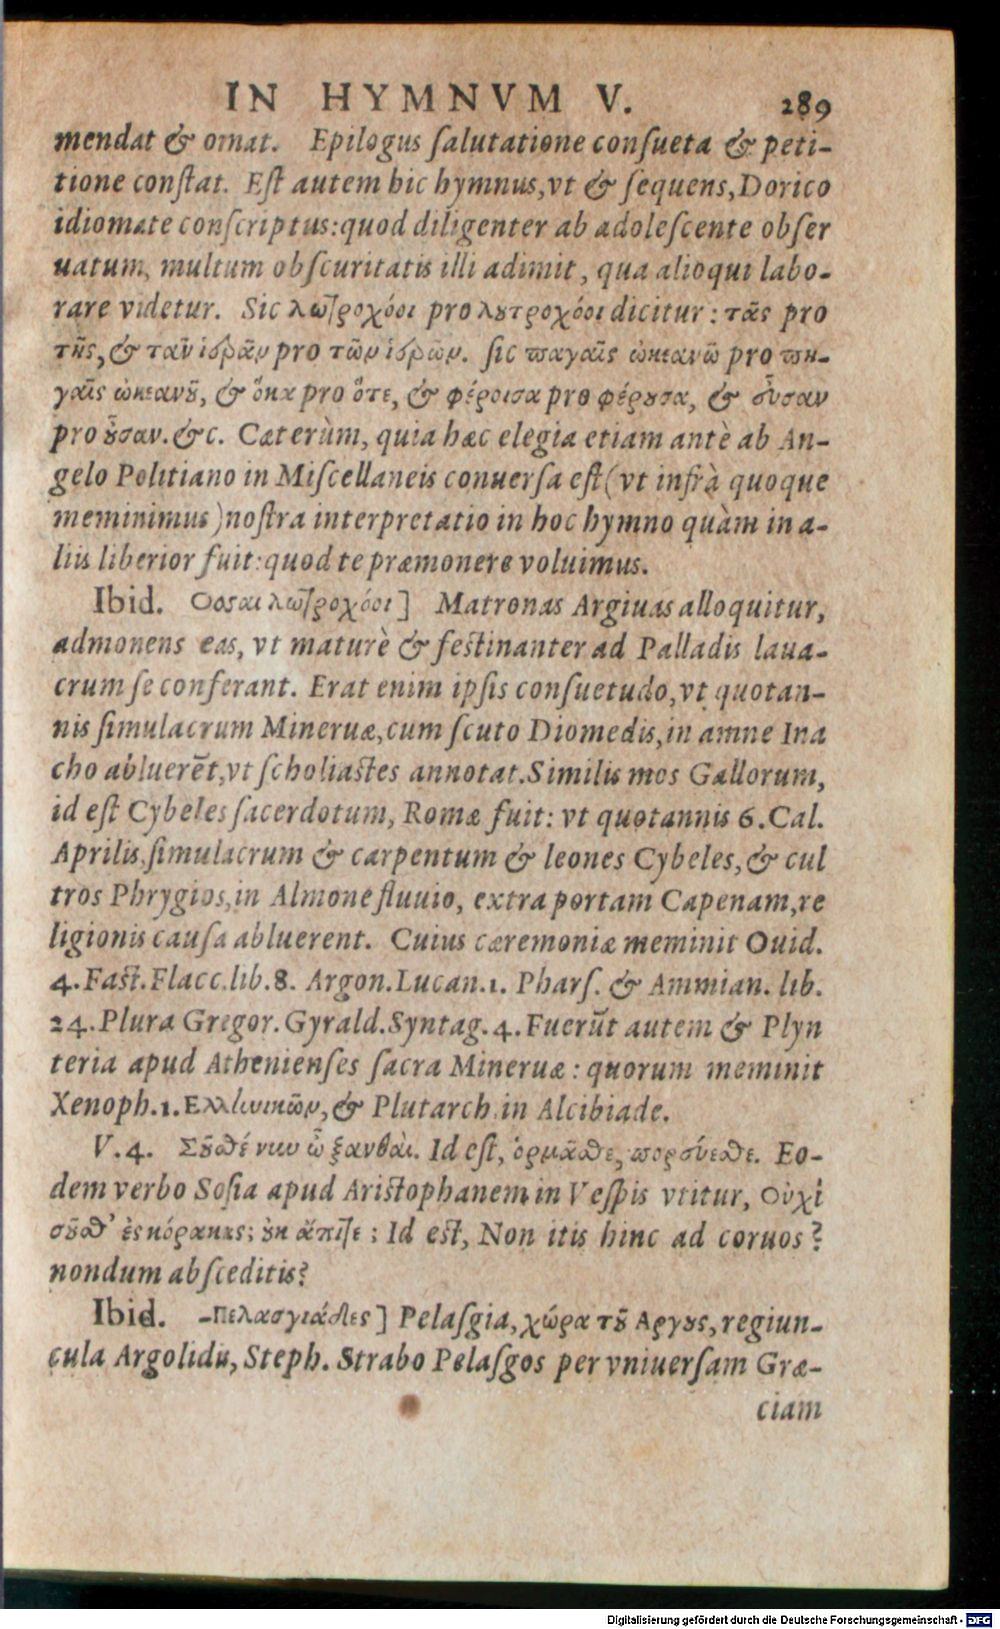 IN HYMNVM V. 289
mendat & ornat. Epilogus ſalutatione conſueta & peti-
tione conſtat. Eſt autem hic hymnus, vt & ſequens, Dorico
idiomate conſcriptus: quod diligenter ab adoleſcente obſer
uatum, multum obſcuritatis illi adimit, qua alioqui labo-
rare videtur. Sic λωτροχόοι pro λȣτροχόοι dicitur: τᾶς pro
τῆς, & τᾶν ἱδρᾶν pro τῶν ἱδρῶν. ſic παγαῖς ὠκεανῶ pro πη-
γαῖς ὠκεανȣ͂, & ὅκα pro ὅτε, & φέροισα pro φέρȣσα, & οὖσαν
pro ȣ̓͂σαν. &c. Cæterùm, quia hæc elegia etiam antè ab An-
gelo Politiano in Miſcellaneis conuerſa eſt (vt infrà quoque
meminimus) noſtra interpretatio in hoc hymno quàm in a-
liis liberior fuit: quod te præmonere voluimus.
Ibid. Οσαι λωτροχόοι] Matronas Argiuas alloquitur,
admonens eas, vt maturè & feſtinanter ad Palladis laua-
crum ſe conferant. Erat enim ipſis conſuetudo, vt quotan-
nis ſimulacrum Mineruæ, cum ſcuto Diomedis, in amne Ina
cho abluerēt, vt ſcholiaſtes annotat. Similis mos Gallorum,
id eſt Cybeles ſacerdotum, Romæ fuit: vt quotannis 6. Cal.
Aprilis, ſimulacrum & carpentum & leones Cybeles, & cul
tros Phrygios, in Almone fluuio, extra portam Capenam, re
ligionis cauſa abluerent. Cuius cæremoniæ meminit Ouid.
4. Faſt. Flacc. lib. 8. Argon. Lucan. 1. Pharſ. & Ammian. lib.
24. Plura Gregor. Gyrald. Syntag. 4. Fuerūt autem & Plyn
teria apud Athenienſes ſacra Mineruæ: quorum meminit
Xenoph. 1. Ελληνικῶν, & Plutarch. in Alcibiade.
V. 4. Σȣ͂σθέ νυν ὦ ξανθαὶ. Id eſt, ὁρμᾶσθε, πορσύεσθε. Eo-
dem verbo Soſia apud Ariſtophanem in Veſpis vtitur, Οὐχὶ
σȣ͂σθ' ἐς κόρακας; ȣκ ἄπιτε; Id eſt, Non itis hinc ad coruos?
nondum abſceditis?
Ibid. -Πελασγιάδες] Pelaſgia, χώρα τȣ͂ Αργȣς, regiun-
cula Argolidis, Steph. Strabo Pelaſgos per vniuerſam Græ-
ciam
Digitalisierung gefördert durch die Deutsche Forschungsgemeinschaft - DFG